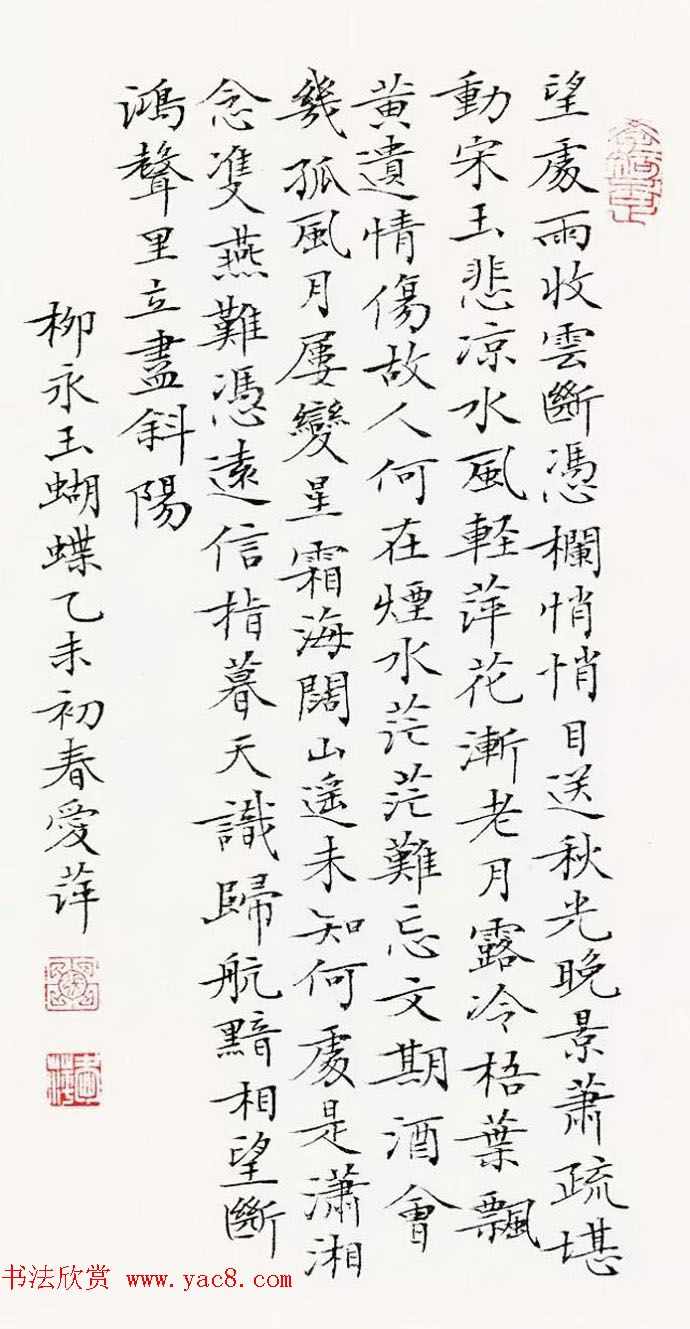 望處雨收雲斷憑欄悄悄目送秋光晚景蕭疏堪
動宋玉悲凉水風軽萍花漸老月露冷梧葉飄
黄遺情傷故人何在煙水茫茫難忘文期酒會
幾孤風月屢變星霜海闊山遥未知何處是瀟湘
念雙燕難憑遠信指暮天識歸航黯相望斷
鴻聲里立盡斜陽
柳永玉蝴蝶乙未初春愛萍
书法欣赏 www.yac8.com